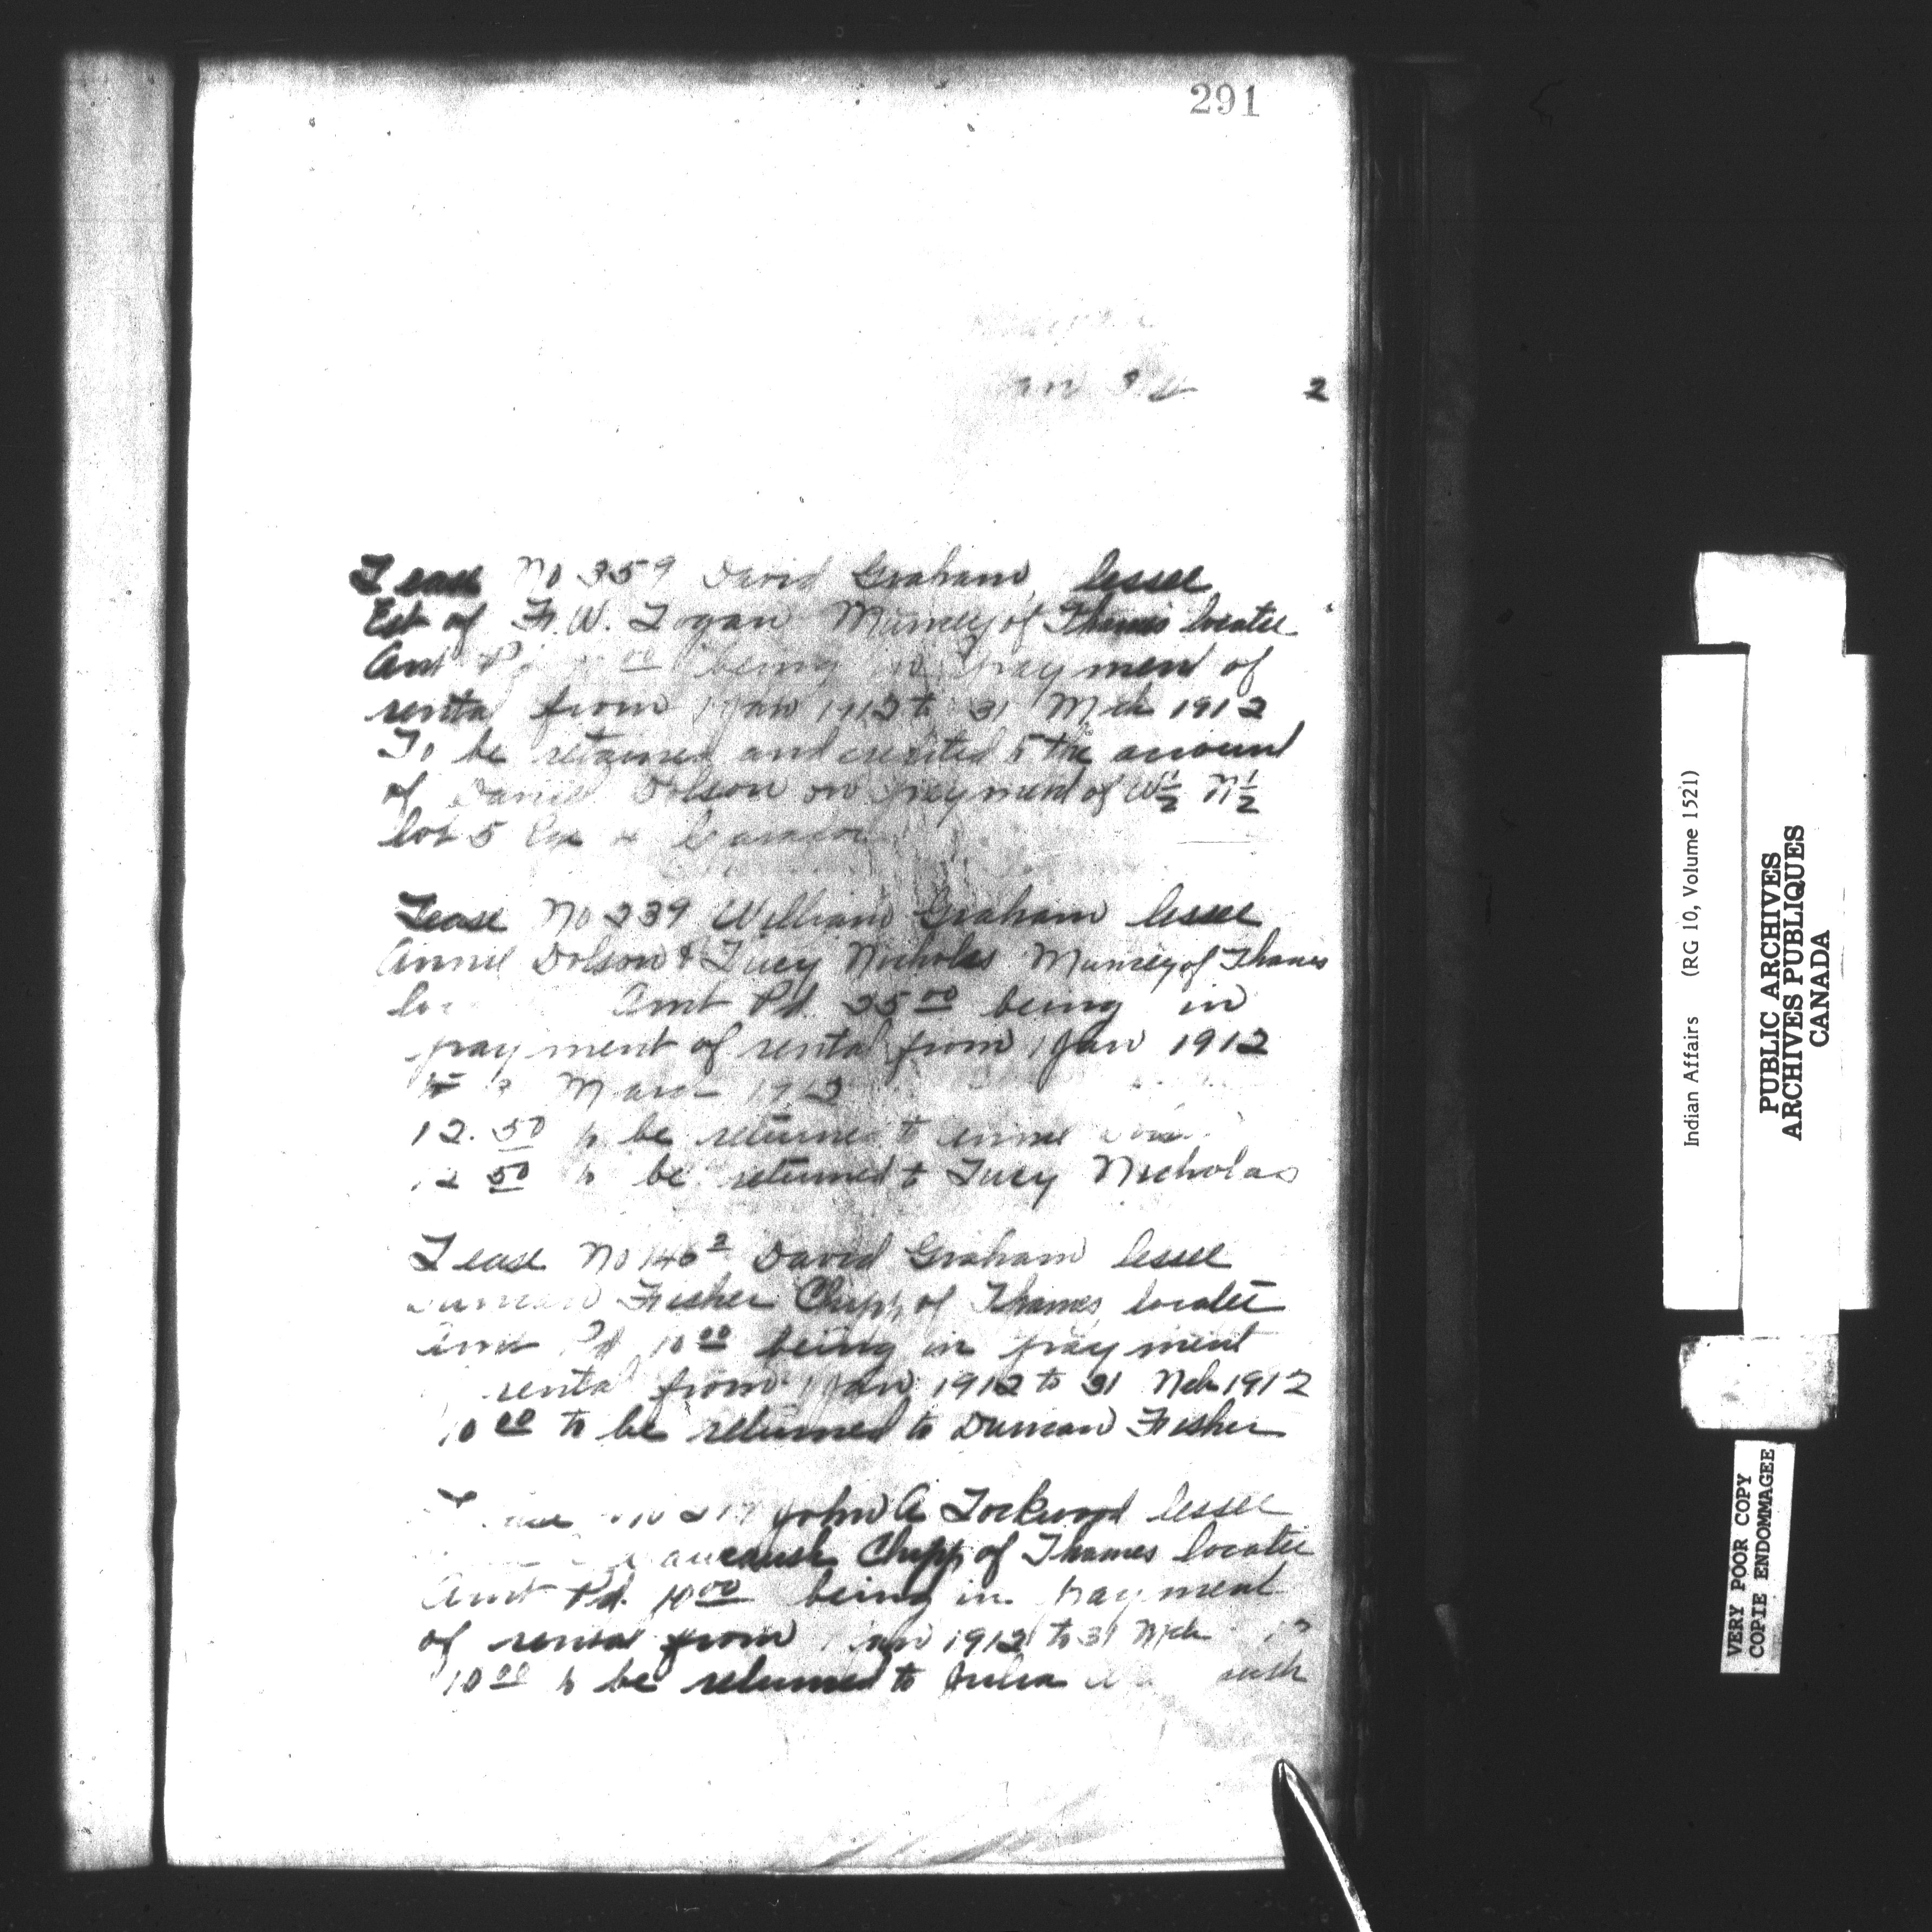 291
2
Lease No 359 David Graham lessee
Est of F. W. Logan Muncey of Thames locatee
Amt 00 being in payment of
rental from 1 Jan 1912 to 31 Mch 1912
To be retained and credited to the account
of Daniel Dolson on payment of W½ N½
lot 5
Lease No 239 William Graham lessee
Annie Dolson & Lucy Nicholas Muncey of Thames
Amt Pd. 25 00 being in
payment of rental from 1 Jan 1912
1912
12.50 to be returned to Annie
12 50 to be returned to Lucy Nicholas
Lease No 146² David Graham lessee
Duncan Fisher Chipp of Thames locatee
Amt Pd 10 00 being in payment
rental from 1 Jan 1912 to 31 Mch 1912
10 00 to be returned to Duncan Fisher
John A Lockwood lessee
Chipp of Thames locatee
Amt Pd. 10 00 being in payment
of rental from 1912 to 31 Mch
10 00 to be returned to Julia
Indian Affairs (RG 10, Volume 1521)
PUBLIC ARCHIVES
ARCHIVES PUBLIQUES
CANADA
VERY POOR COPY
COPIE ENDOMMAGEE